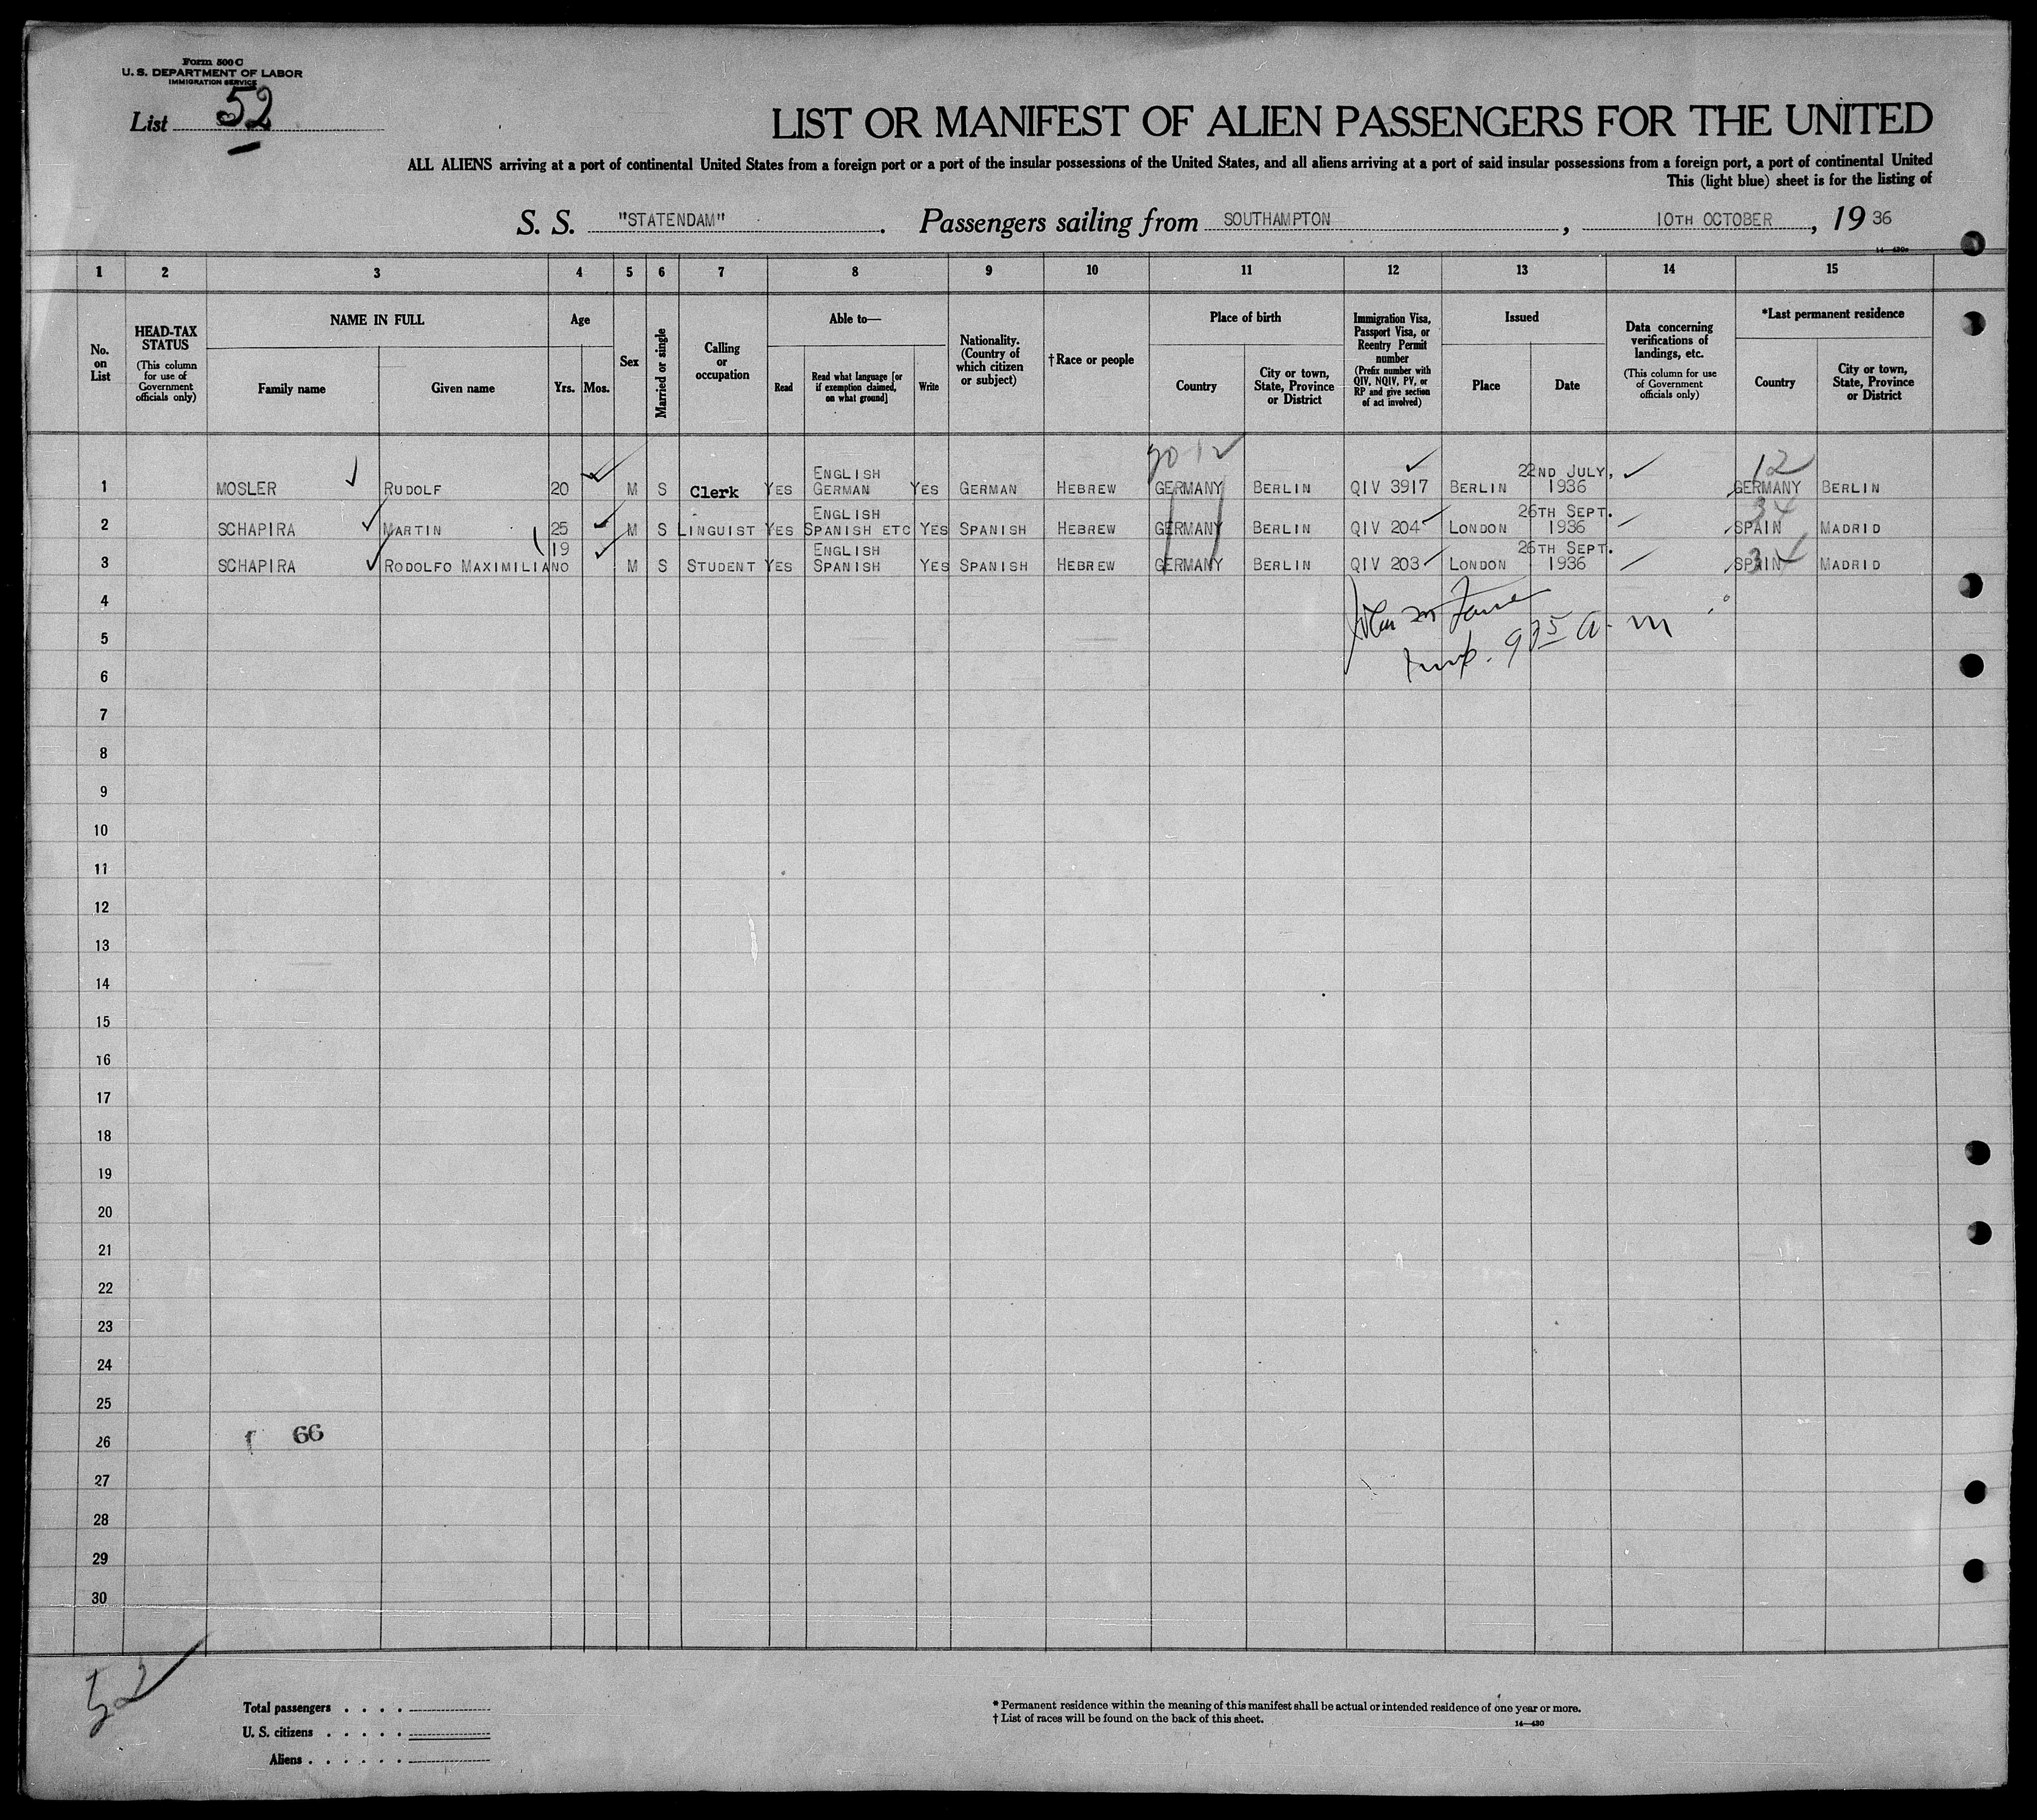 Form 500 C
U. S. DEPARTMENT OF LABOR
IMMIGRATION SERVICE
List 52
LIST OR MANIFEST OF ALIEN PASSENGERS FOR THE UNITED
ALL ALIENS arriving at a port of continental United States from a foreign port or a port of the insular possessions of the United States, and all aliens arriving at a port of said insular possessions from a foreign port, a port of continental United
This (light blue) sheet is for the listing of
S. S. "STATENDAM". Passengers sailing from SOUTHAMPTON, 10TH OCTOBER, 19 36
14—430a
1 2 3 4 5 6 7 8 9 10 11 12 13 14 15
No. on List
HEAD-TAX STATUS (This column for use of Government officials only)
NAME IN FULL Family name Given name
Age Yrs. Mos.
Sex
Married or single
Calling or occupation
Able to— Read Read what language [or if exemption claimed, on what ground] Write
Nationality. (Country of which citizen or subject)
†Race or people
Place of birth Country City or town, State, Province or District
Immigration Visa, Passport Visa, or Reentry Permit number (Prefix number with QIV, NQIV, PV, or RP and give section of act involved)
Issued Place Date
Data concerning verifications of landings, etc. (This column for use of Government officials only)
*Last permanent residence Country City or town, State, Province or District
12
1 MOSLER RUDOLF 20 M S Clerk YES ENGLISH GERMAN YES GERMAN HEBREW GERMANY BERLIN QIV 3917 BERLIN 22ND JULY, 1936 GERMANY BERLIN
34
2 SCHAPIRA MARTIN 25 M S LINGUIST YES ENGLISH SPANISH ETC YES SPANISH HEBREW GERMANY BERLIN QIV 204 LONDON 26TH SEPT. 1936 SPAIN MADRID
34
3 SCHAPIRA RODOLFO MAXIMILIANO 19 M S STUDENT YES ENGLISH SPANISH YES SPANISH HEBREW GERMANY BERLIN QIV 203 LONDON 26TH SEPT. 1936 SPAIN MADRID
4
5
6
7
8
9
10
11
12
13
14
15
16
17
18
19
20
21
22
23
24
25
26 66
27
28
29
30
52
Total passengers . . . .
U. S. citizens . . . . .
Aliens . . . . . .
* Permanent residence within the meaning of this manifest shall be actual or intended residence of one year or more.
† List of races will be found on the back of this sheet.
14—430